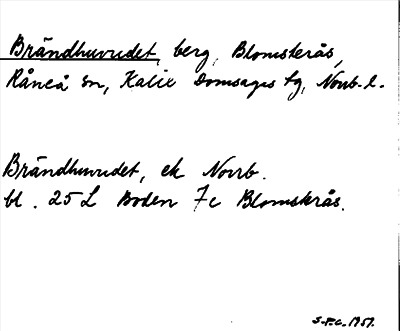 Brändhuvudet, berg, Blomsterås,
Råneå sn, Kalix Domsagas tg, Norrb. l.
Brändhuvudet, ek Norrb.
bl. 25 L Boden 7c Blomsterås.
S.F.C. 1951.